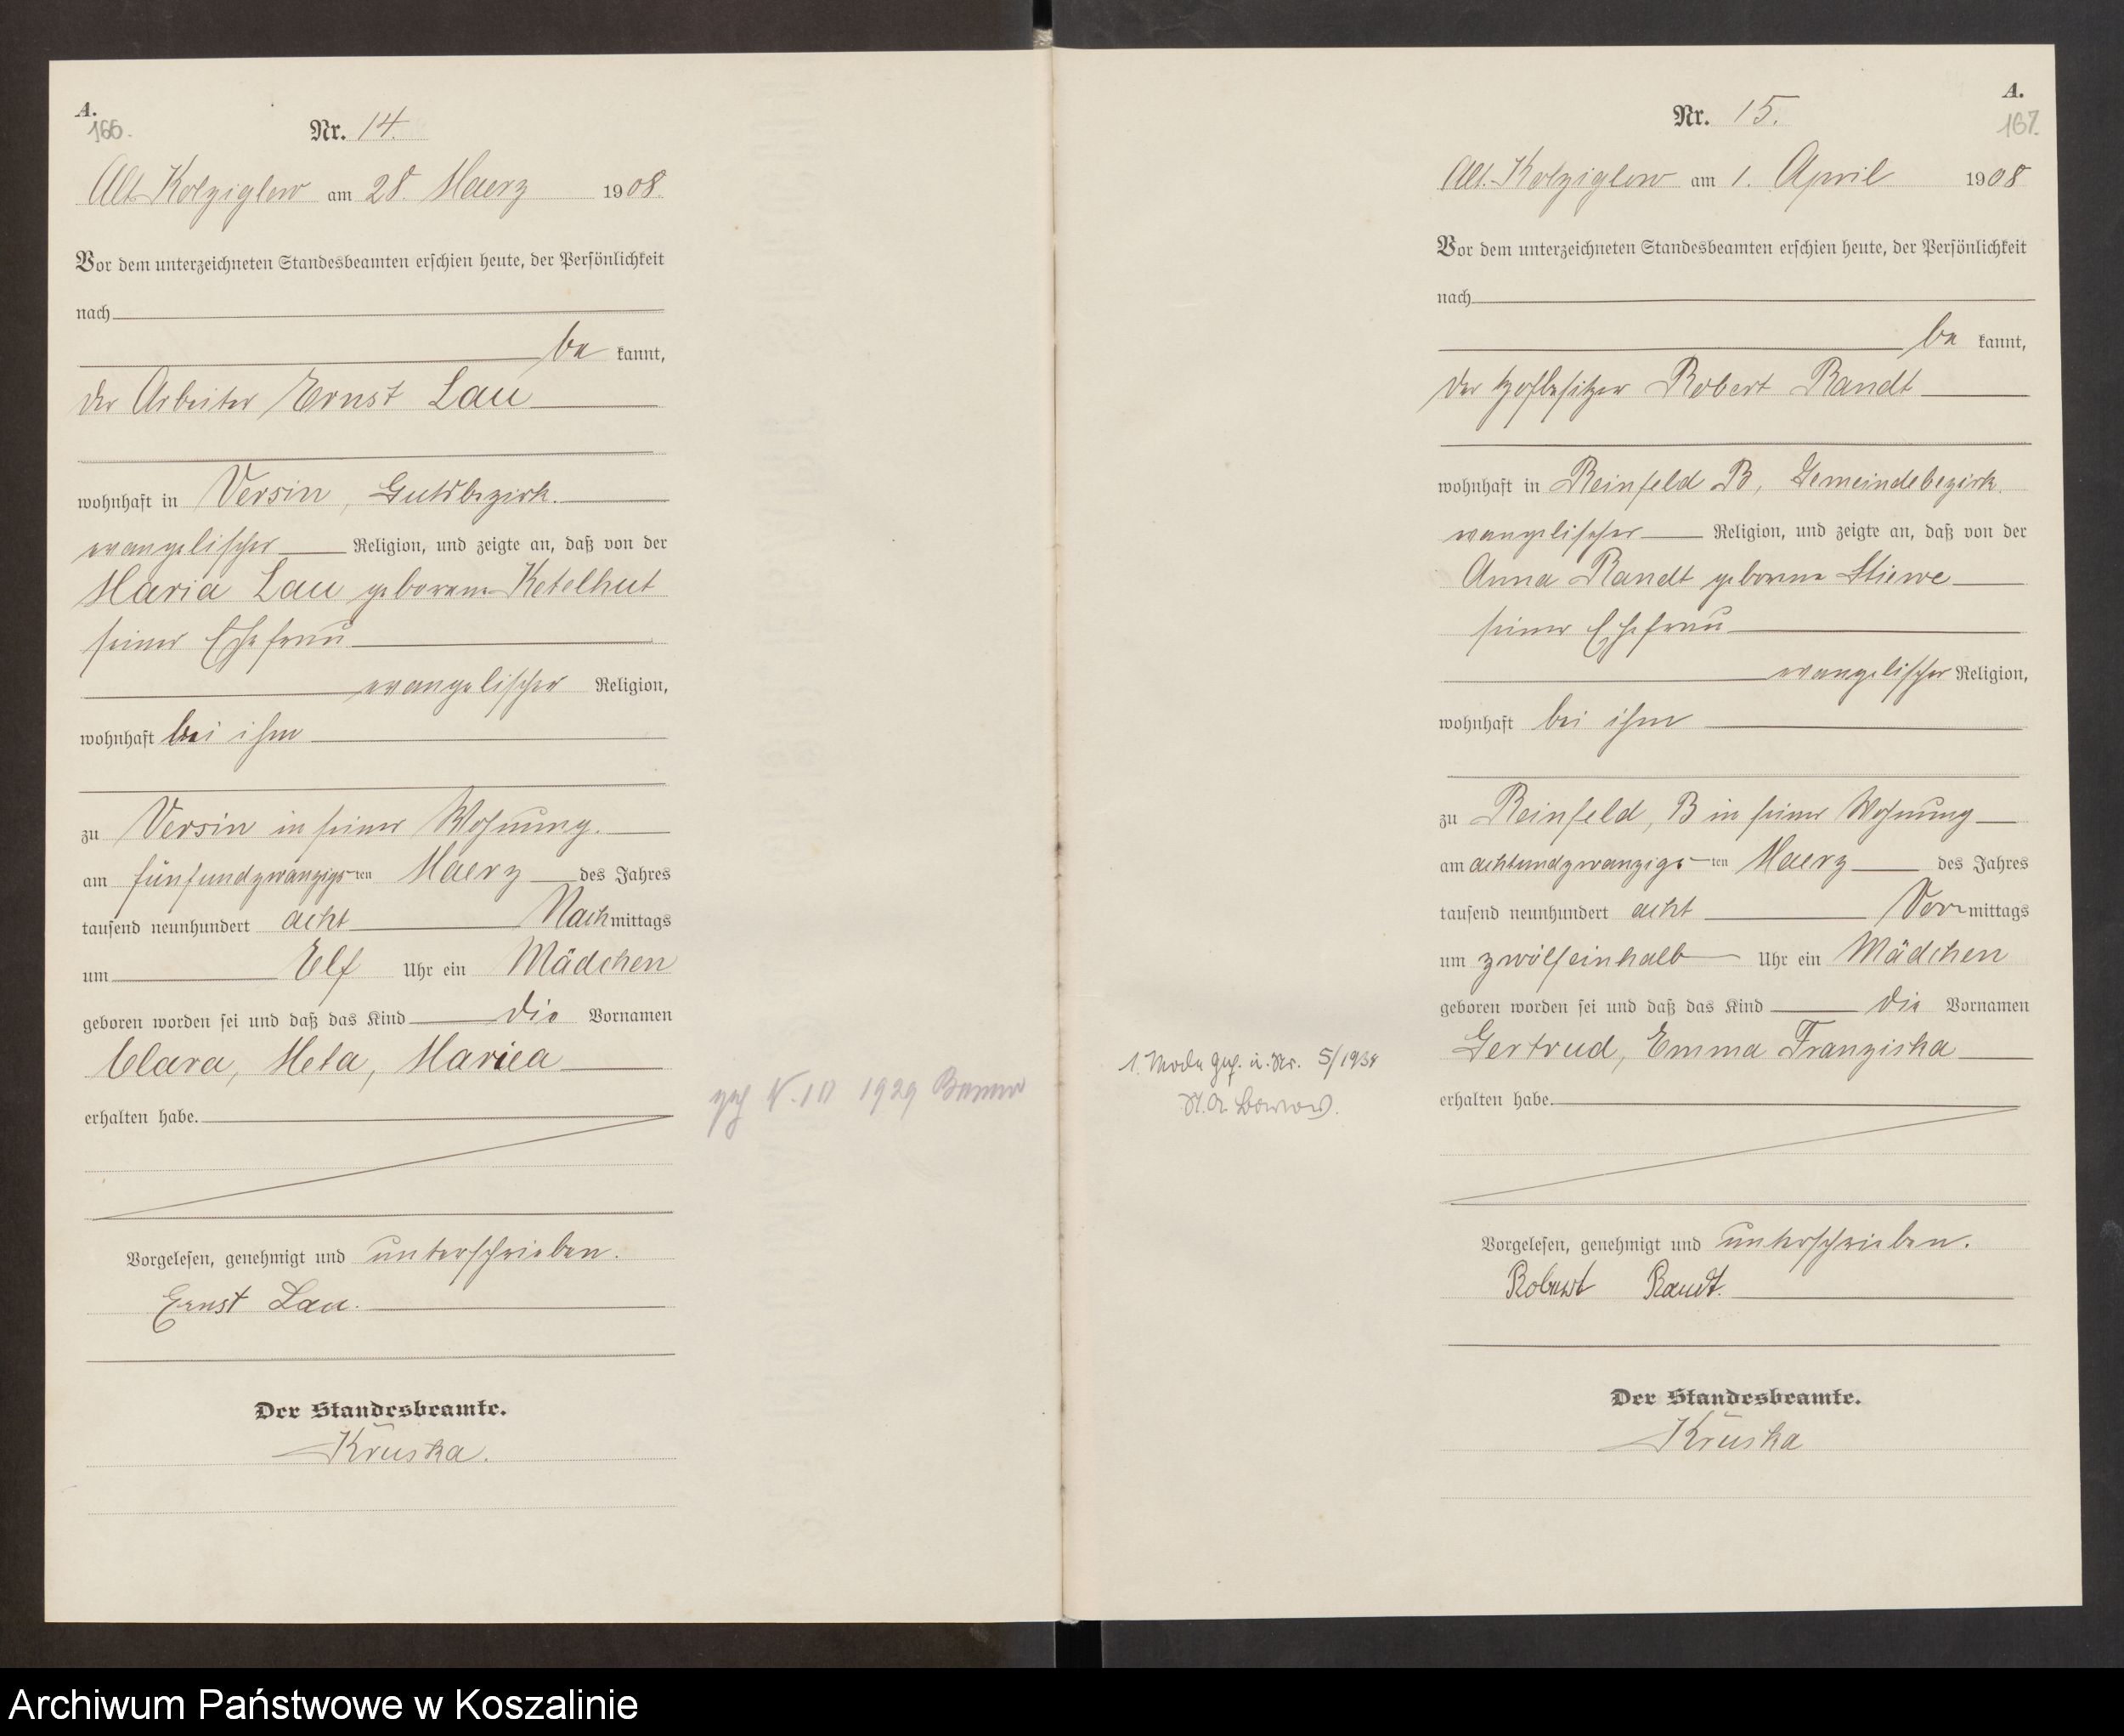 A.
166.
Nr. 14.
Alt Kolziglow am 28. Maerz 1908.
Vor dem unterzeichneten Standesbeamten erschien heute, der Persönlichkeit
nach
be kannt,
der Arbeiter Ernst Lau
wohnhaft in Versin, Gutsbezirk.
evangelischer Religion, und zeigte an, daß von der
Maria Lau geborene Ketelhut
seiner Ehefrau
evangelischer Religion,
wohnhaft bei ihm
zu Versin in seiner Wohnung.
am fünfundzwanzigsten Maerz des Jahres
tausend neunhundert acht Nachmittags
um Elf Uhr ein Mädchen
geboren worden sei und daß das Kind die Vornamen
Clara, Meta, Mariea
erhalten habe.
1929
Vorgelesen, genehmigt und unterschrieben.
Ernst Lau.
Der Standesbeamte.
Kruska.
A.
167.
Nr. 15.
Alt. Kolziglow am 1. April 1908
Vor dem unterzeichneten Standesbeamten erschien heute, der Persönlichkeit
nach
be kannt,
der Hofbesitzer Robert Randt
wohnhaft in Reinfeld B, Gemeindebezirk.
evangelischer Religion, und zeigte an, daß von der
Anna Randt geborene Stiewe
seiner Ehefrau
evangelischer Religion,
wohnhaft bei ihm
zu Reinfeld, B in seiner Wohnung
am achtundzwanzigsten Maerz des Jahres
tausend neunhundert acht Vormittags
um zwölfeinhalb Uhr ein Mädchen
geboren worden sei und daß das Kind die Vornamen
Gertrud, Emma Franziska
erhalten habe.
Nr. 5/1934
Vorgelesen, genehmigt und unterschrieben.
Robert Randt.
Der Standesbeamte.
Kruska
Archiwum Państwowe w Koszalinie